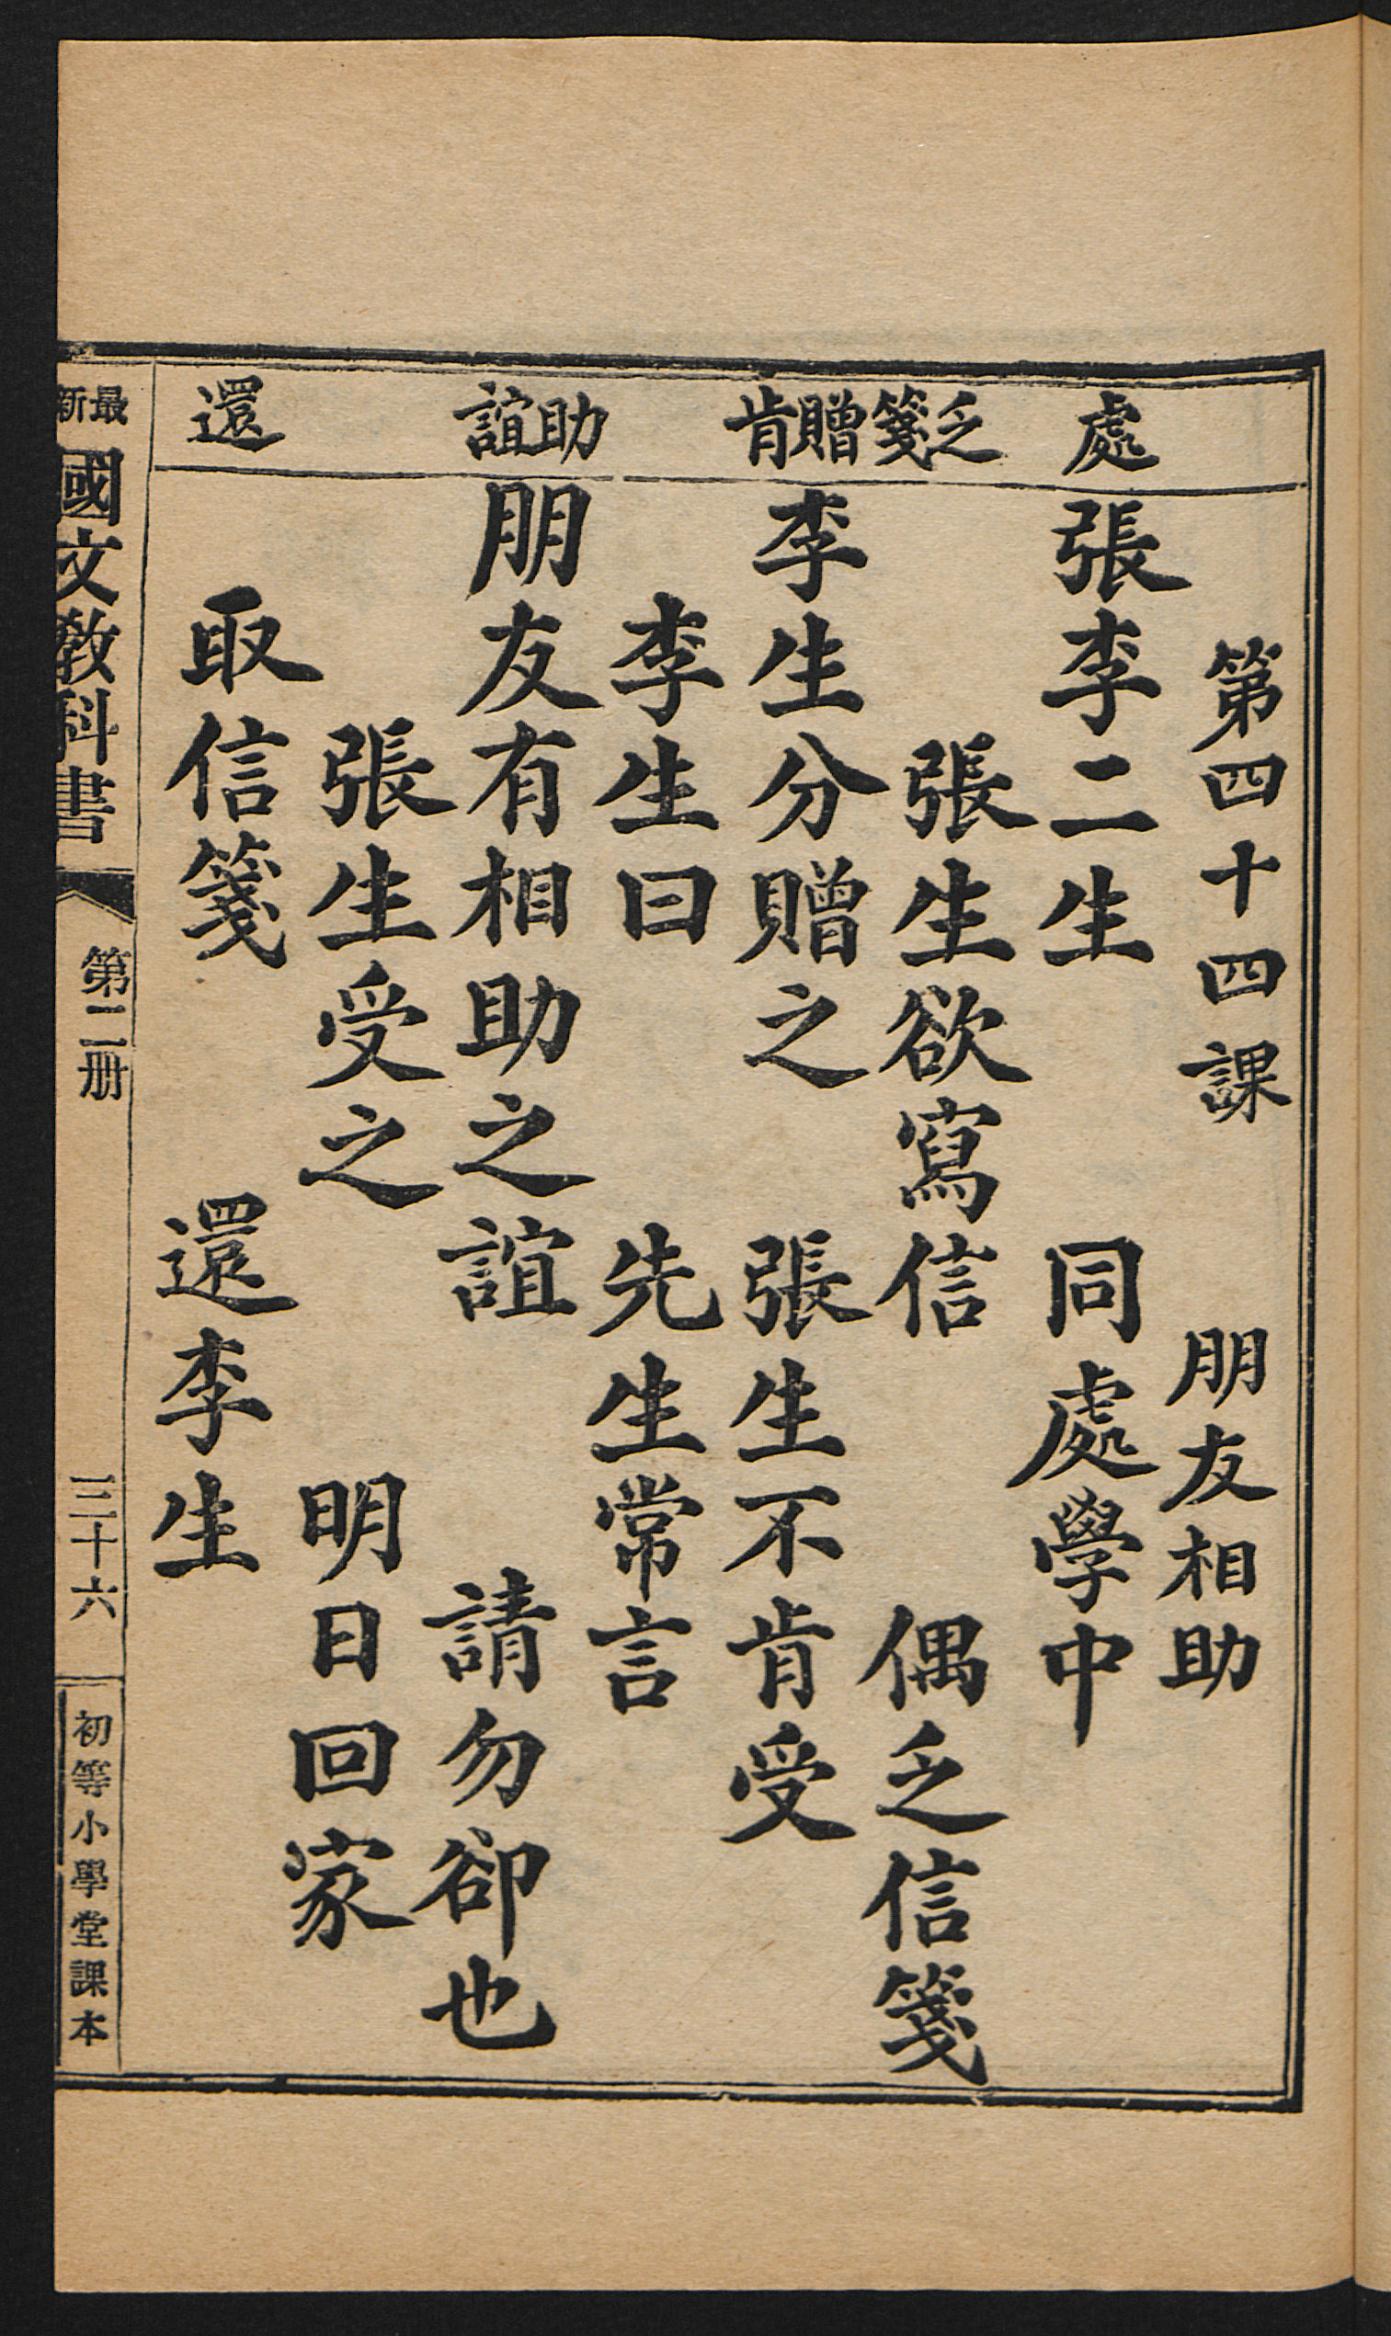 第四十四課 朋友相助
處
乏箋
贈肯
助誼
還
張李二生 同處學中
張生欲寫信 偶乏信箋
李生分贈之 張生不肯受
李生曰 先生常言
朋友有相助之誼 請勿卻也
張生受之 明日回家
取信箋 還李生
最新國文教科書 第二册 三十六 初等小學堂課本